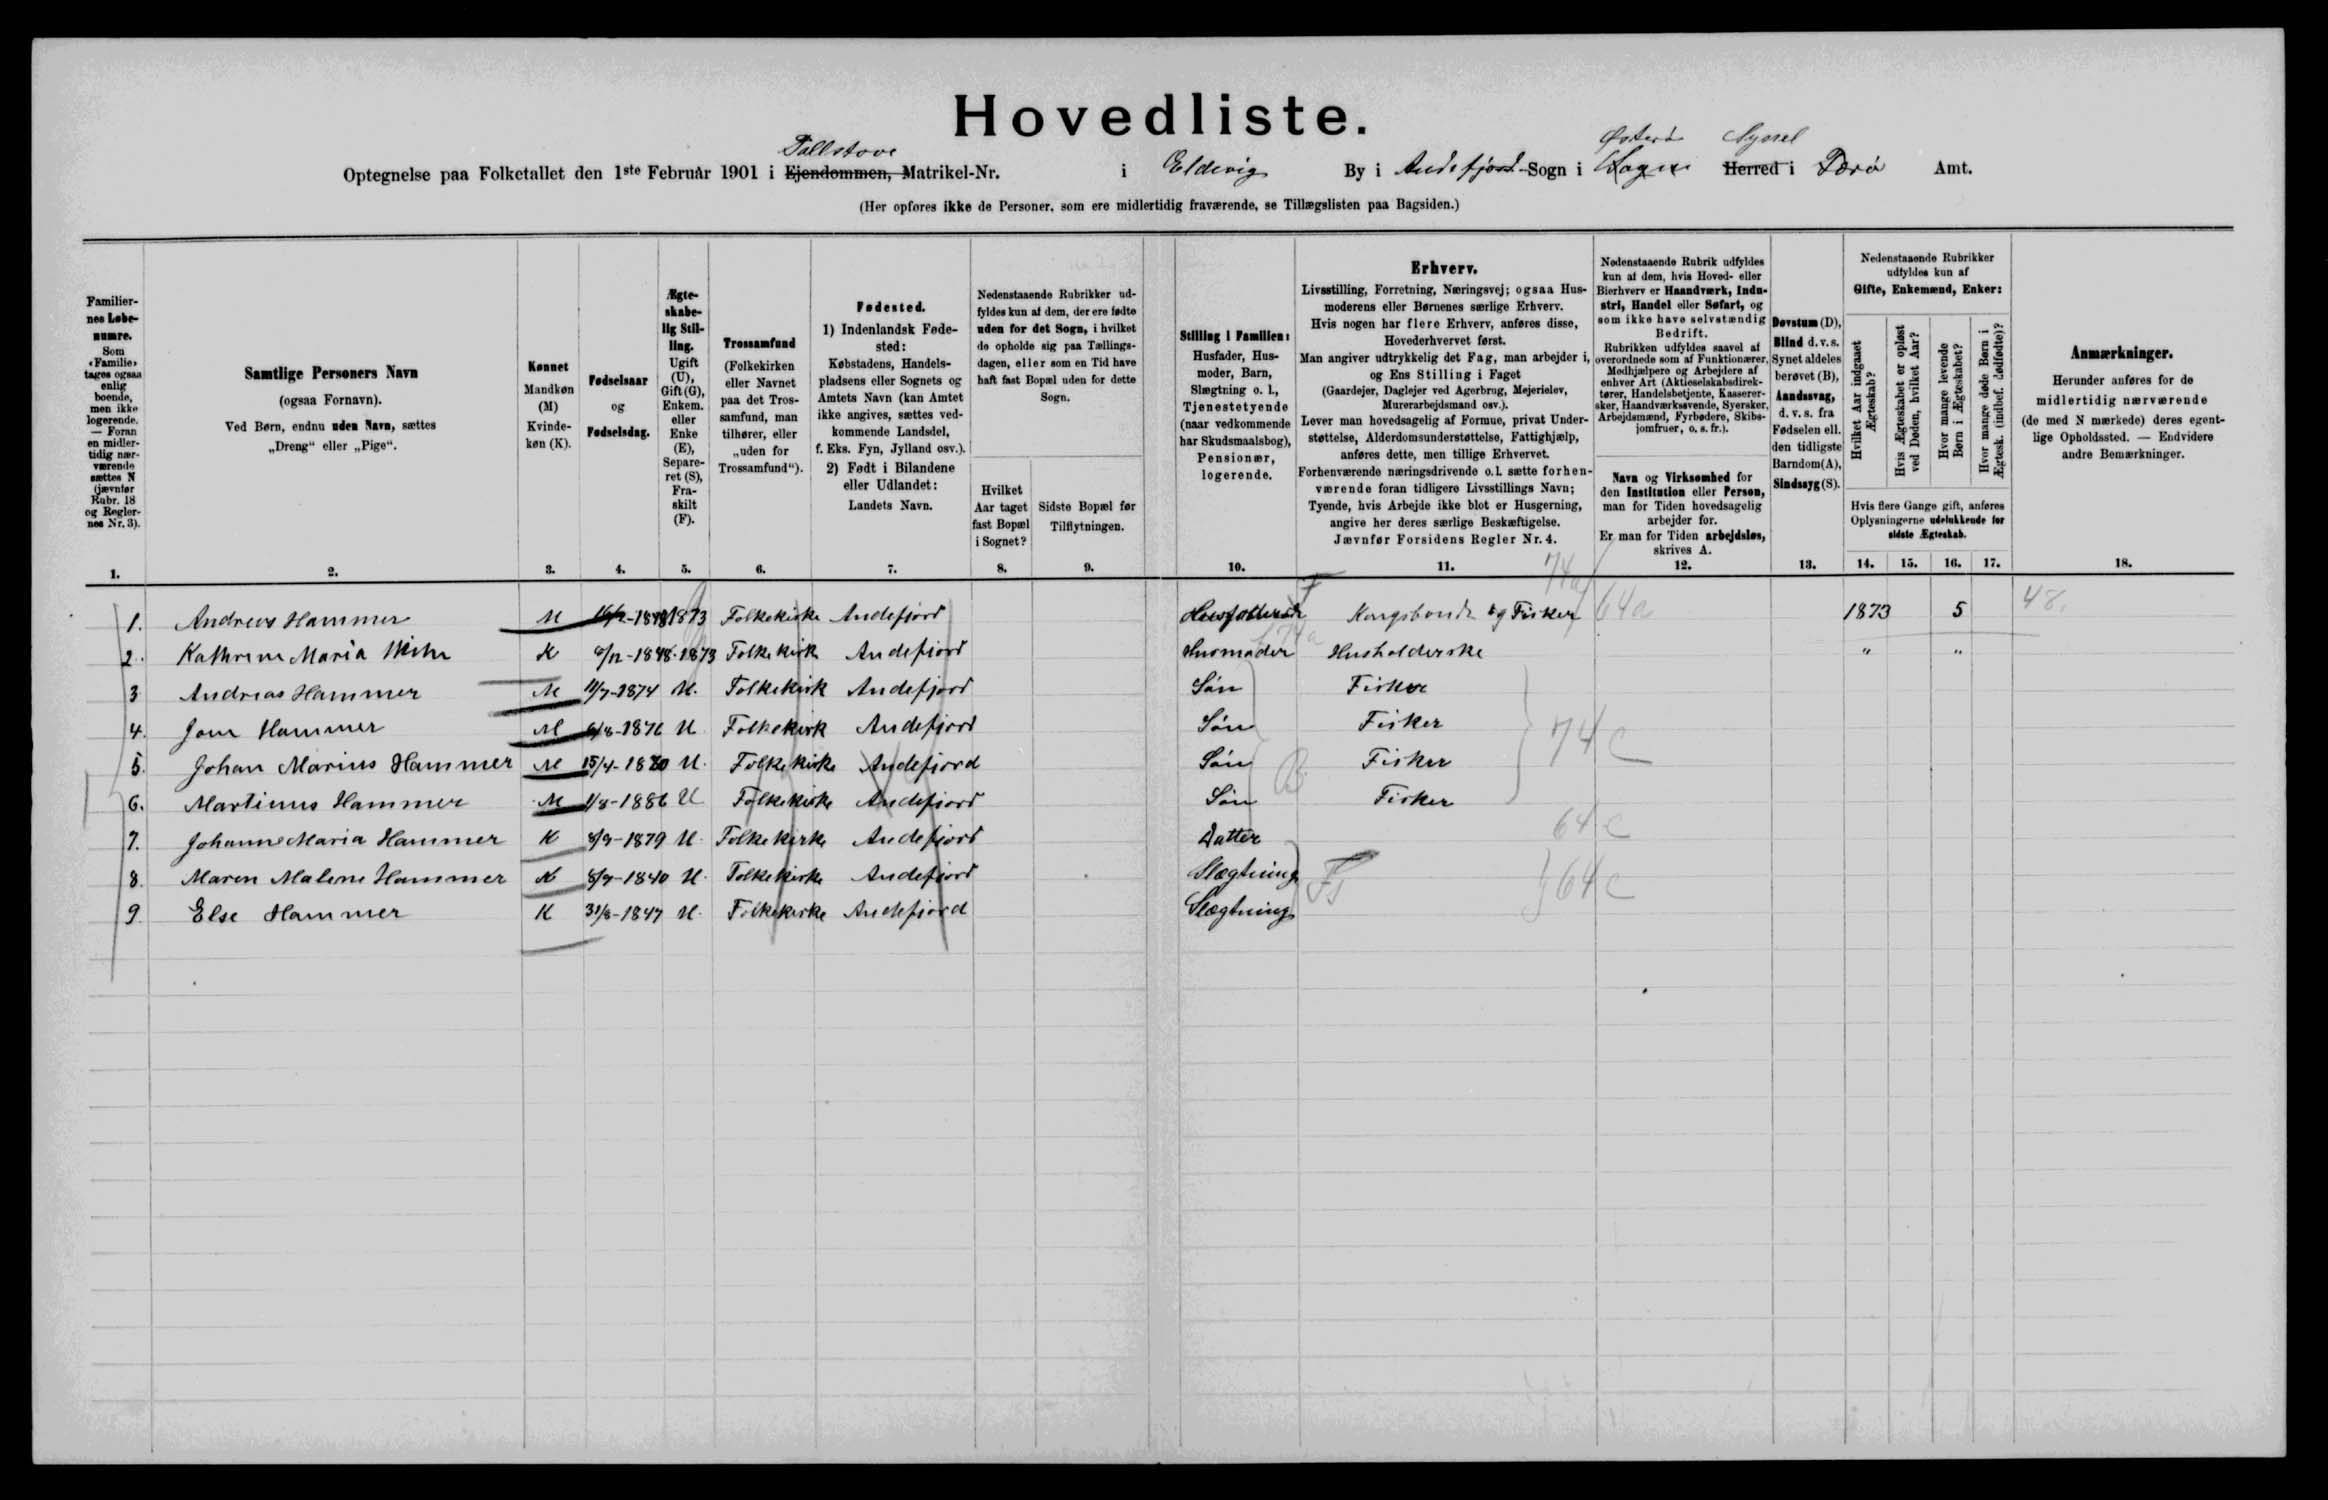 Hovedliste.
Østerø Syssel
Pallstove
Optegnelse paa Folketallet den 1ste Februar 1901 i Ejendommen, Matrikel-Nr. i Eldevig By i Andefjord Sogn i Herred i Færø Amt.
(Her opføres ikke de Personer, som ere midlertidig fraværende, se Tillægslisten paa Bagsiden.)
Familiernes Løbenumre.
Som «Familie» tages ogsaa enlig boende, men ikke logerende. — Foran en midlertidig nærværende sættes N (jævnfør Rubr. 18 og Reglernes Nr. 3).
1.
Samtlige Personers Navn
(ogsaa Fornavn).
Ved Børn, endnu uden Navn, sættes
„Dreng“ eller „Pige“.
2.
Kønnet
Mandkøn
(M)
Kvinde-
køn (K).
3.
Fødselsaar
og
Fødselsdag.
4.
Ægte-
skabe-
lig Stil-
ling.
Ugift
(U),
Gift (G),
Enkem.
eller
Enke
(E),
Separe-
ret (S),
Fra-
skilt
(F).
5.
Trossamfund
(Folkekirken
eller Navnet
paa det Tros-
samfund, man
tilhører, eller
„uden for
Trossamfund“).
6.
Fødested.
1) Indenlandsk Føde-
sted:
Købstadens, Handels-
pladsens eller Sognets og
Amtets Navn (kan Amtet
ikke angives, sættes ved-
kommende Landsdel,
f. Eks. Fyn, Jylland osv.).
2) Født i Bilandene
eller Udlandet:
Landets Navn.
7.
Nedenstaaende Rubrikker ud-
fyldes kun af dem, der ere fødte
uden for det Sogn, i hvilket
de opholde sig paa Tællings-
dagen, eller som en Tid have
haft fast Bopæl uden for dette
Sogn.
Hvilket
Aar taget
fast Bopæl
i Sognet?
8.
Sidste Bopæl før
Tilflytningen.
9.
Stilling i Familien:
Husfader, Hus-
moder, Barn,
Slægtning o. l.,
Tjenestetyende
(naar vedkommende
har Skudsmaalsbog),
Pensionær,
logerende.
10.
Erhverv.
Livsstilling, Forretning, Næringsvej; ogsaa Hus-
moderens eller Børnenes særlige Erhverv.
Hvis nogen har flere Erhverv, anføres disse,
Hovederhvervet først.
Man angiver udtrykkelig det Fag, man arbejder i,
og Ens Stilling i Faget
(Gaardejer, Daglejer ved Agerbrug, Mejerielev,
Murerarbejdsmand osv.).
Lever man hovedsagelig af Formue, privat Under-
støttelse, Alderdomsunderstøttelse, Fattighjælp,
anføres dette, men tillige Erhvervet.
Forhenværende næringsdrivende o.l. sætte forhen-
værende foran tidligere Livsstillings Navn;
Tyende, hvis Arbejde ikke blot er Husgerning,
angive her deres særlige Beskæftigelse.
Jævnfør Forsidens Regler Nr. 4.
11.
Nedenstaaende Rubrik udfyldes
kun af dem, hvis Hoved- eller
Bierhverv er Haandværk, Indu-
stri, Handel eller Søfart, og
som ikke have selvstændig
Bedrift.
Rubrikken udfyldes saavel af
overordnede som af Funktionærer,
Medhjælpere og Arbejdere af
enhver Art (Aktieselskabsdirek-
tører, Handelsbetjente, Kasserer-
sker, Haandværkssvende, Syersker,
Arbejdsmænd, Fyrbødere, Skibs-
jomfruer, o. s. fr.).
Navn og Virksomhed for
den Institution eller Person,
man for Tiden hovedsagelig
arbejder for.
Er man for Tiden arbejdsløs,
skrives A.
12.
Døvstum (D),
Blind d. v. s.
Synet aldeles
berøvet (B),
Aandssvag,
d. v. s. fra
Fødselen ell.
den tidligste
Barndom (A),
Sindssyg (S).
13.
Nedenstaaende Rubrikker
udfyldes kun af
Gifte, Enkemænd, Enker:
Hvilket Aar indgaaet
Ægteskab?
Hvis Ægteskabet er opløst
ved Døden, hvilket Aar?
Hvor mange levende
Børn i Ægteskabet?
Hvor mange døde Børn i
Ægtesk. (indbef. dødfødte)?
Hvis flere Gange gift, anføres
Oplysningerne udelukkende for
sidste Ægteskab.
14. 15. 16. 17.
Anmærkninger.
Herunder anføres for de
midlertidig nærværende
(de med N mærkede) deres egent-
lige Opholdssted. — Endvidere
andre Bemærkninger.
18.
1. Andreas Hammer M 1873 Folkekirke Andefjord Kongsbonde og Fisker 74a 64a 1873 5 48.
2. Kathrine Maria K 1848 1873 Folkekirk Andefjord Husmoder Husholderske " "
3. Andreas Hammer M 11/7-1874 U. Folkekirk Andefjord Søn Fisker
4. Hammer M 1876 U Folkekirk Andefjord Søn Fisker 74 C
5. Johan Marius Hammer M 15/4-1880 U. Folkekirke Andefjord Søn Fisker
6. Martinus Hammer M 1/8-1886 U Folkekirke Andefjord Søn Fisker
7. Johanne Maria Hammer K 8/9-1879 U. Folkekirke Andefjord Datter 64 C
8. Maren Malene Hammer K 8/9-1840 U. Folkekirke Andefjord Slægtning 64 C
9. Else Hammer K 31/8-1847 U. Folkekirke Andefjord Slægtning